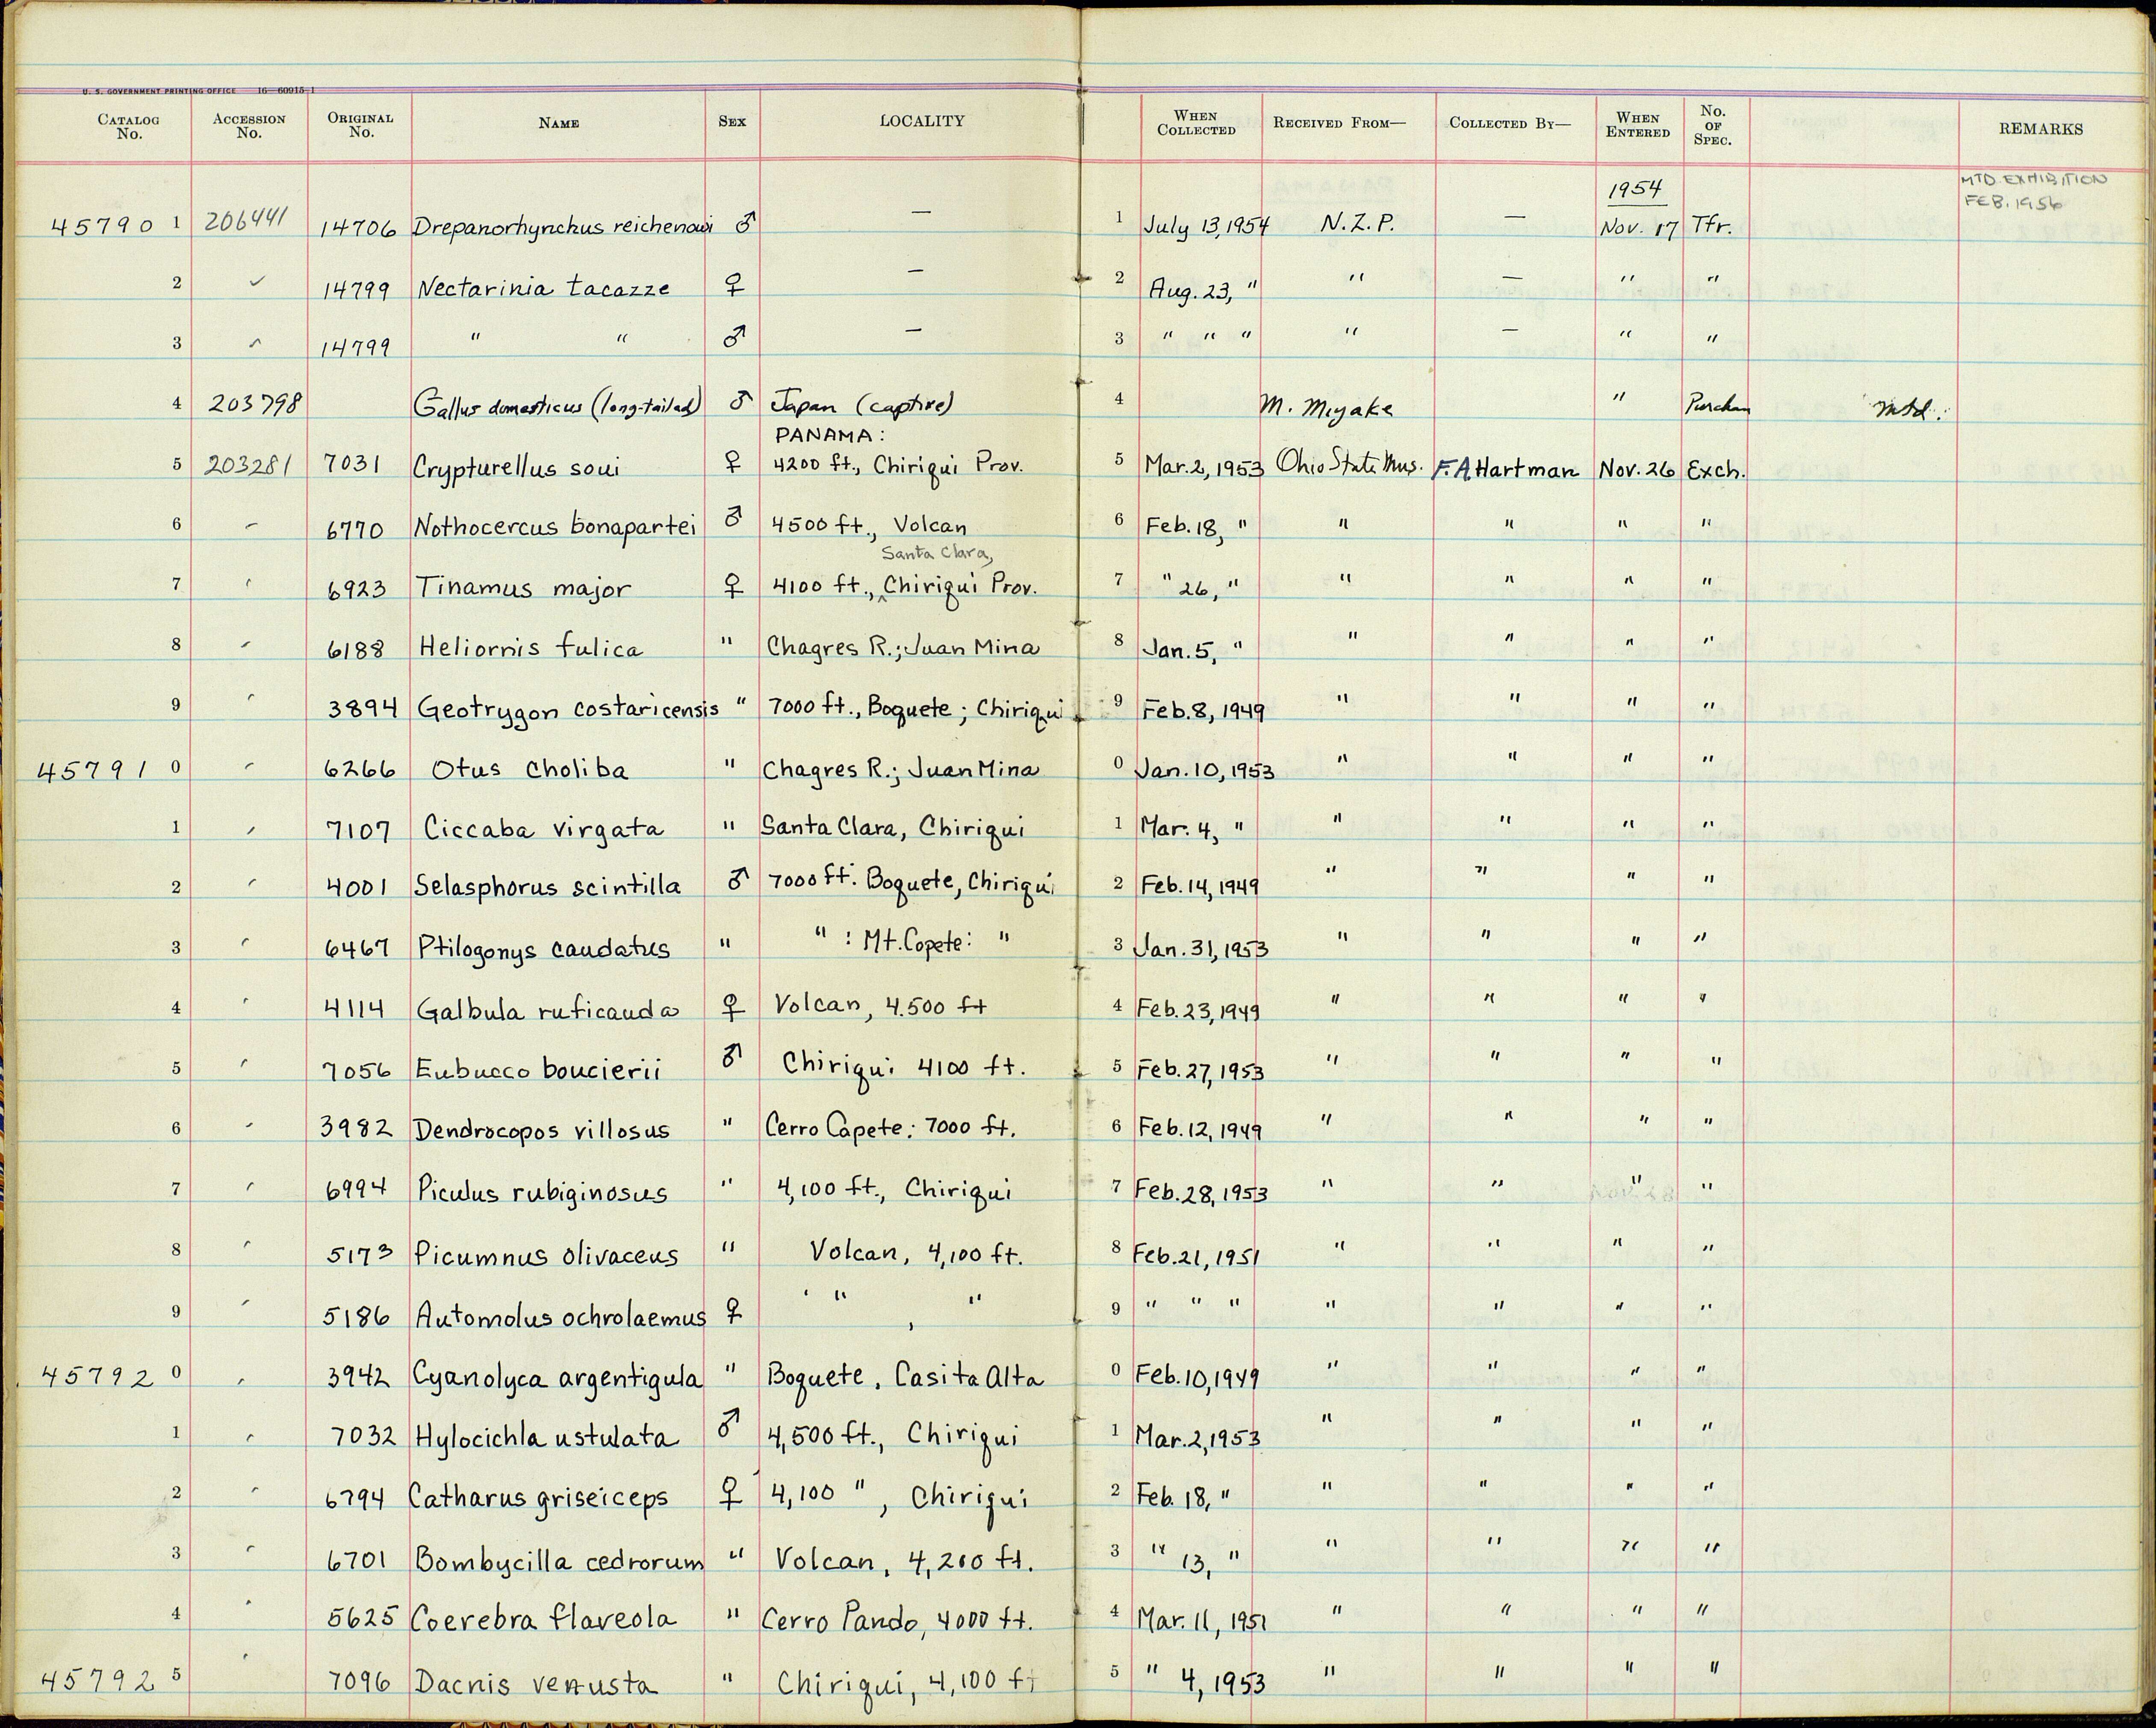 U. S. GOVERNMENT PRINTING OFFICE 16—60915-1
CATALOG No. ACCESSION No. ORIGINAL No. NAME SEX LOCALITY WHEN COLLECTED RECEIVED FROM— COLLECTED BY— WHEN ENTERED No. OF SPEC. REMARKS
1954 MTD. EXHIBITION FEB. 1956
45790 1 206441 14706 Drepanorhynchus reichenowi ♂ — 1 July 13, 1954 N.Z.P. — Nov. 17 Tfr.
2 ✓ 14799 Nectarinia tacazze ♀ — 2 Aug. 23, " " — " "
3 14799 " " ♂ — 3 " " " " — " "
4 203798 Gallus domesticus (long-tailed) ♂ Japan (captive) 4 M. Miyake " Purchas mtd.
PANAMA:
5 203281 7031 Crypturellus soui ♀ 4200 ft., Chiriqui Prov. 5 Mar. 2, 1953 Ohio State Mus. F. A. Hartman Nov. 26 Exch.
6 6770 Nothocercus bonapartei ♂ 4500 ft., Volcan 6 Feb. 18, " " " " "
Santa Clara,
7 6923 Tinamus major ♀ 4100 ft., Chiriqui Prov. 7 " 26, " " " " "
8 6188 Heliornis fulica " Chagres R.; Juan Mina 8 Jan. 5, " " " " "
9 3894 Geotrygon costaricensis " 7000 ft., Boquete; Chiriqui 9 Feb. 8, 1949 " " " "
45791 0 6266 Otus choliba " Chagres R.; Juan Mina 0 Jan. 10, 1953 " " " "
1 7107 Ciccaba virgata " Santa Clara, Chiriqui 1 Mar. 4, " " " " "
2 4001 Selasphorus scintilla ♂ 7000 ft. Boquete, Chiriqui 2 Feb. 14, 1949 " " " "
3 6467 Ptilogonys caudatus " " : Mt. Copete: " 3 Jan. 31, 1953 " " " "
4 4114 Galbula ruficauda ♀ Volcan, 4.500 ft 4 Feb. 23, 1949 " " " "
5 7056 Eubucco boucierii ♂ Chiriqui 4100 ft. 5 Feb. 27, 1953 " " " "
6 3982 Dendrocopos villosus " Cerro Capete: 7000 ft. 6 Feb. 12, 1949 " " " "
7 6994 Piculus rubiginosus " 4,100 ft., Chiriqui 7 Feb. 28, 1953 " " " "
8 5173 Picumnus olivaceus " Volcan, 4,100 ft. 8 Feb. 21, 1951 " " " "
9 5186 Automolus ochrolaemus ♀ " , " 9 " " " " " " "
45792 0 3942 Cyanolyca argentigula " Boquete, Casita Alta 0 Feb. 10, 1949 " " " "
1 7032 Hylocichla ustulata ♂ 4,500 ft., Chiriqui 1 Mar. 2, 1953 " " " "
2 6794 Catharus griseiceps ♀ 4,100 ", Chiriqui 2 Feb. 18, " " " " "
3 6701 Bombycilla cedrorum " Volcan, 4,200 ft. 3 " 13, " " " " "
4 5625 Coerebra flaveola " Cerro Pando, 4000 ft. 4 Mar. 11, 1951 " " " "
45792 5 7096 Dacnis venusta " Chiriqui, 4,100 ft 5 " 4, 1953 " " " "